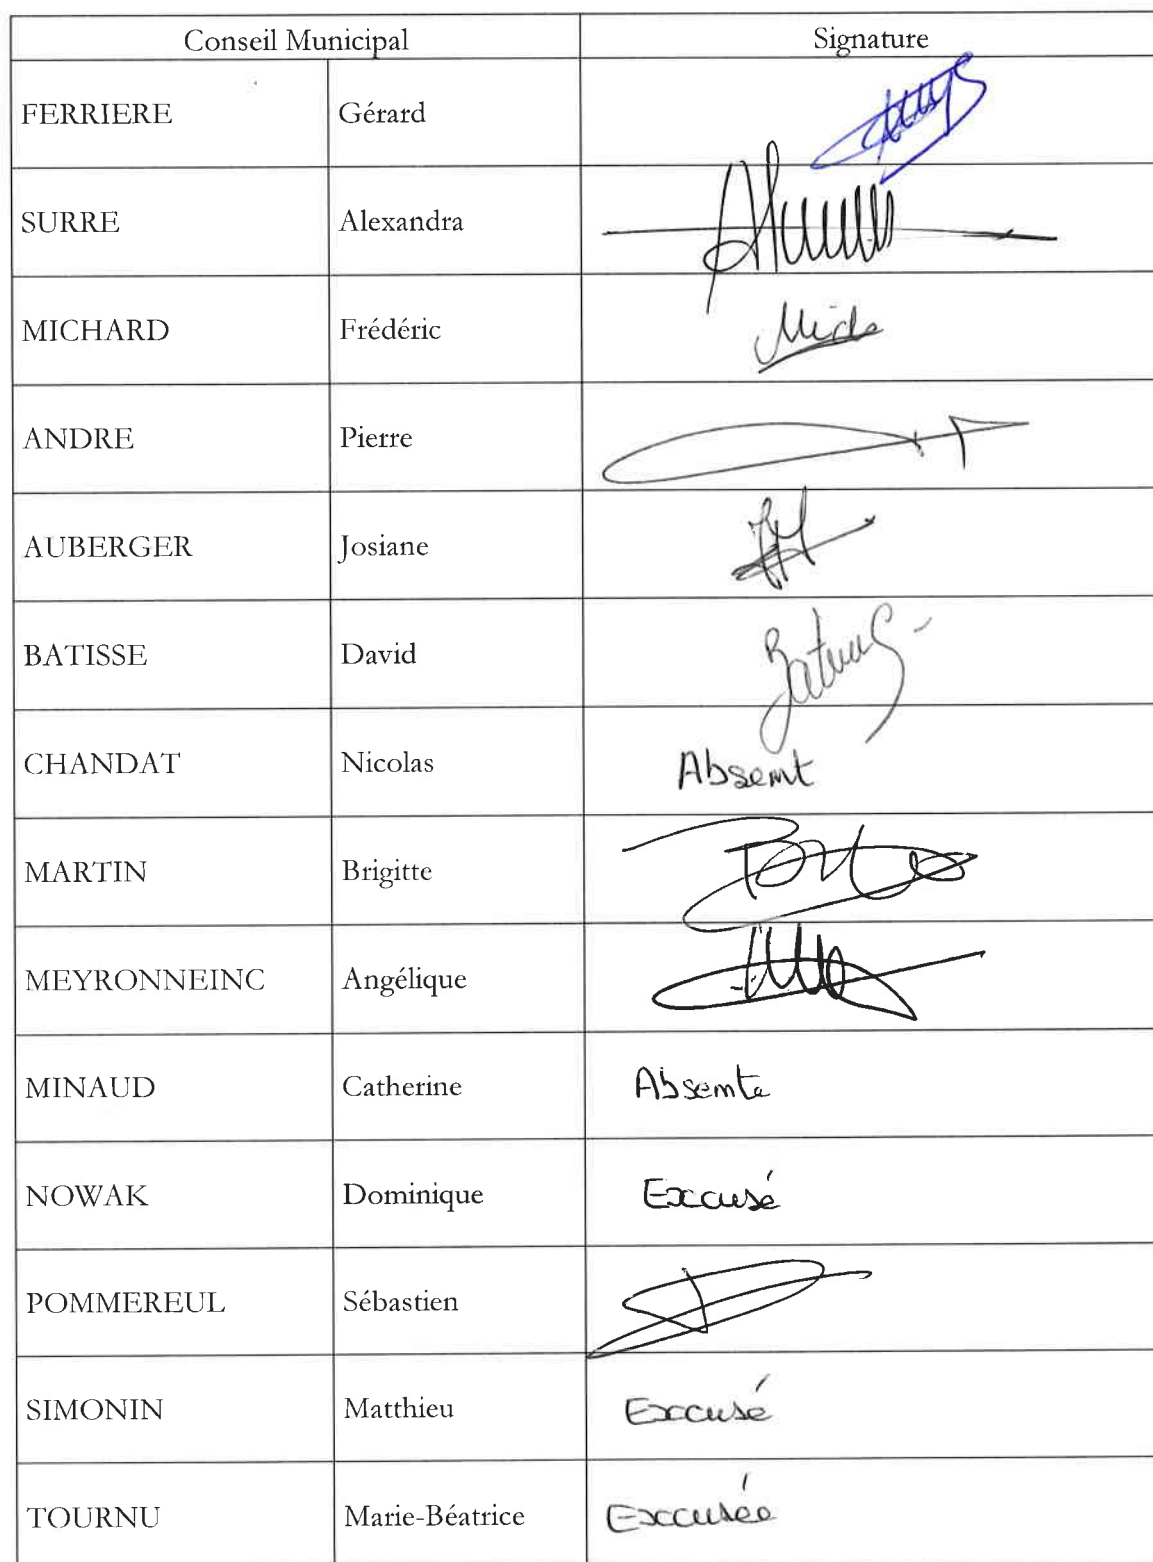 Conseil Municipal Signature
FERRIERE Gérard
SURRE Alexandra
MICHARD Frédéric
ANDRE Pierre
AUBERGER Josiane
BATISSE David
CHANDAT Nicolas Absent
MARTIN Brigitte
MEYRONNEINC Angélique
MINAUD Catherine Absente
NOWAK Dominique Excusé
POMMEREUL Sébastien
SIMONIN Matthieu Excusé
TOURNU Marie-Béatrice Excusée